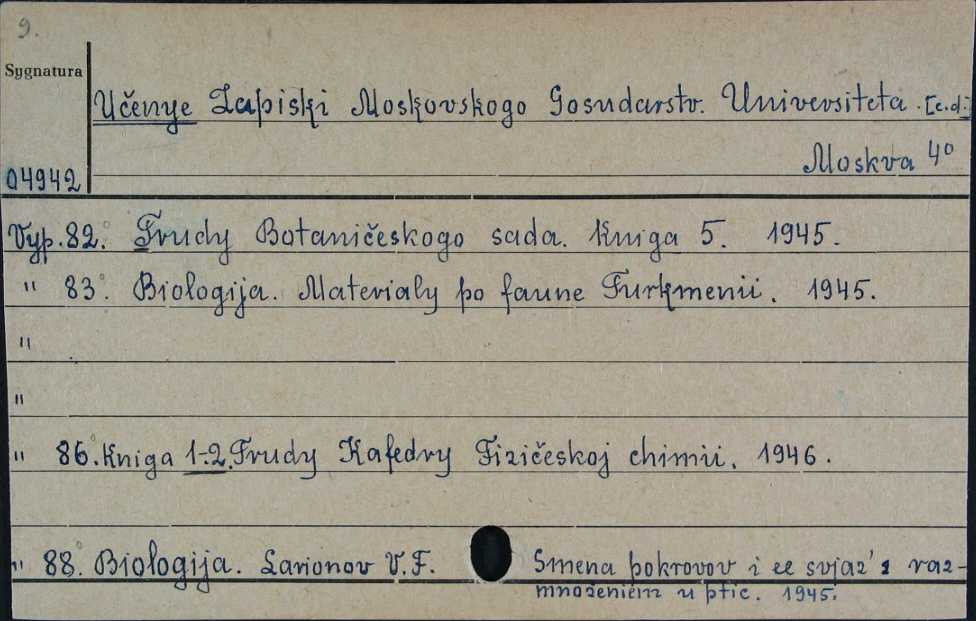 9.
Sygnatura
Učenye Zapiski Moskovskogo Gosudarstv. Universiteta. [c.d.]
Moskva 4°
04942
Vyp. 82. Trudy Botaničeskogo sada. Kniga 5. 1945.
" 83. Biologija. Materialy po faune Turkmenii. 1945.
"
"
" 86. Kniga 1-2. Trudy Kafedry Fizičeskoj chimii. 1946.
" 88. Biologija. Larionov V.F. Smena pokrovov i ee svjaz' s raz-
množeniem u ptic. 1945.